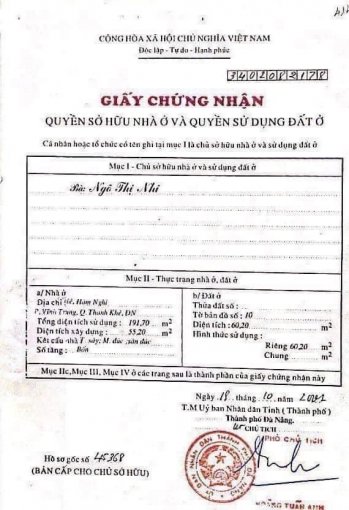 CỘNG HÒA XÃ HỘI CHỦ NGHĨA VIỆT NAM
Độc lập - Tự do - Hạnh phúc
3402082178
GIẤY CHỨNG NHẬN
QUYỀN SỞ HỮU NHÀ Ở VÀ QUYỀN SỬ DỤNG ĐẤT Ở
Cá nhân hoặc tổ chức có tên ghi tại mục I là chủ sở hữu nhà ở và sử dụng đất ở
Mục I - Chủ sở hữu nhà ở và sử dụng đất ở
Bà: Ngô Thị Nhi
Mục II - Thực trạng nhà ở, đất ở
a/ Nhà ở
Địa chỉ Hàm Nghi
P. Vĩnh Trung, Q. Thanh Khê, ĐN
Tổng diện tích sử dụng : 191,70 m2
Diện tích xây dựng : 55,20 m2
Kết cấu nhà T. xây; M. đúc, sàn đúc
Số tầng : Bốn
b/ Đất ở
Thửa đất số :
Tờ bản đồ số : 10
Diện tích : 60,20 m2
Hình thức sử dụng :
Riêng 60,20 m2
Chung m2
Mục IIc, Mục III, Mục IV ở các trang sau là thành phần của giấy chứng nhận này
Ngày 18 tháng 10 năm 2001
T.M Uỷ ban Nhân dân Tỉnh ( Thành phố )
Thành phố Đà Nẵng.
CHỦ TỊCH
PHÓ CHỦ TỊCH
Hồ sơ gốc số 45368
(BẢN CẤP CHO CHỦ SỞ HỮU)
HOÀNG TUẤN ANH